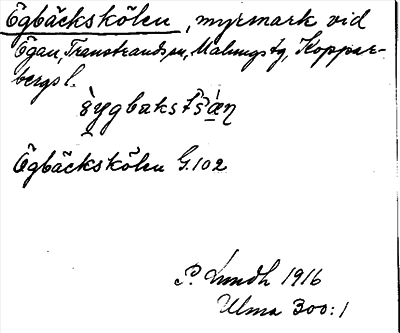 Ögbäckskölen, myrmark vid
Ögan, Transtrands sn, Malungs tg, Koppar-
bergs l.
Ögbäckskölen G.102
P. Lundh 1916
Ulma 300:1